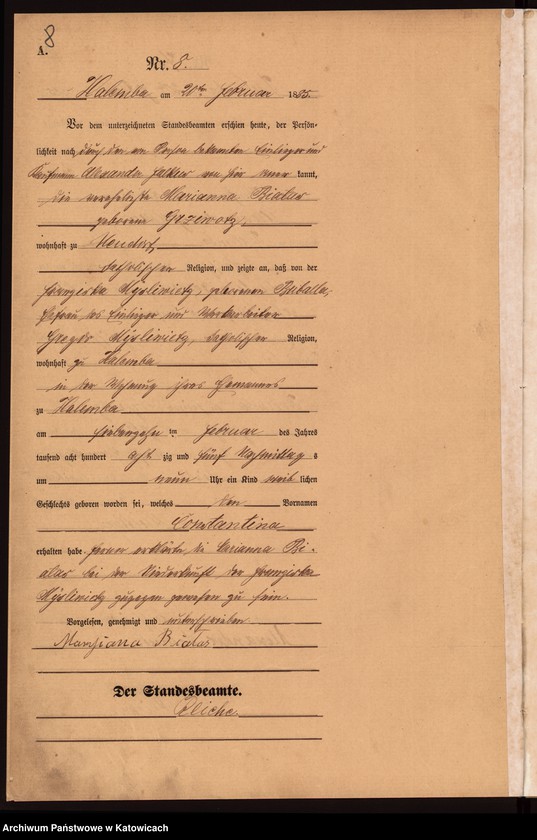 A.
8
Nr. 8.
Halemba am 20ten Februar 1885.
Vor dem unterzeichneten Standesbeamten erschien heute, der Persön-
lichkeit nach durch den von Person bekannten Einlieger und
Kaufmann Alexander von hier kannt,
die verehelichte Marianna Bialas
geborene Grziwotz,
wohnhaft zu Neudorf
katholischer Religion, und zeigte an, daß von der
Franziska Myslinietz, geborenen Buballa,
Ehefrau des Einlieger und Werkarbeiter
Gregor Myslinietz, katholischer Religion,
wohnhaft zu Halemba
in der Wohnung ihres Ehemannes
zu Halemba
am siebenzehn ten Februar des Jahres
tausend acht hundert acht zig und fünf Nachmittag s
um neun Uhr ein Kind weib lichen
Geschlechts geboren worden sei, welches den Vornamen
Constantina
erhalten habe. Ferner erklärte die Marianna Bi-
alas bei der Niederkunft der Franziska
Myslinietz zugegen gewesen zu sein.
Vorgelesen, genehmigt und unterschrieben
Maryiana Bialas
Der Standesbeamte.
Archiwum Państwowe w Katowicach